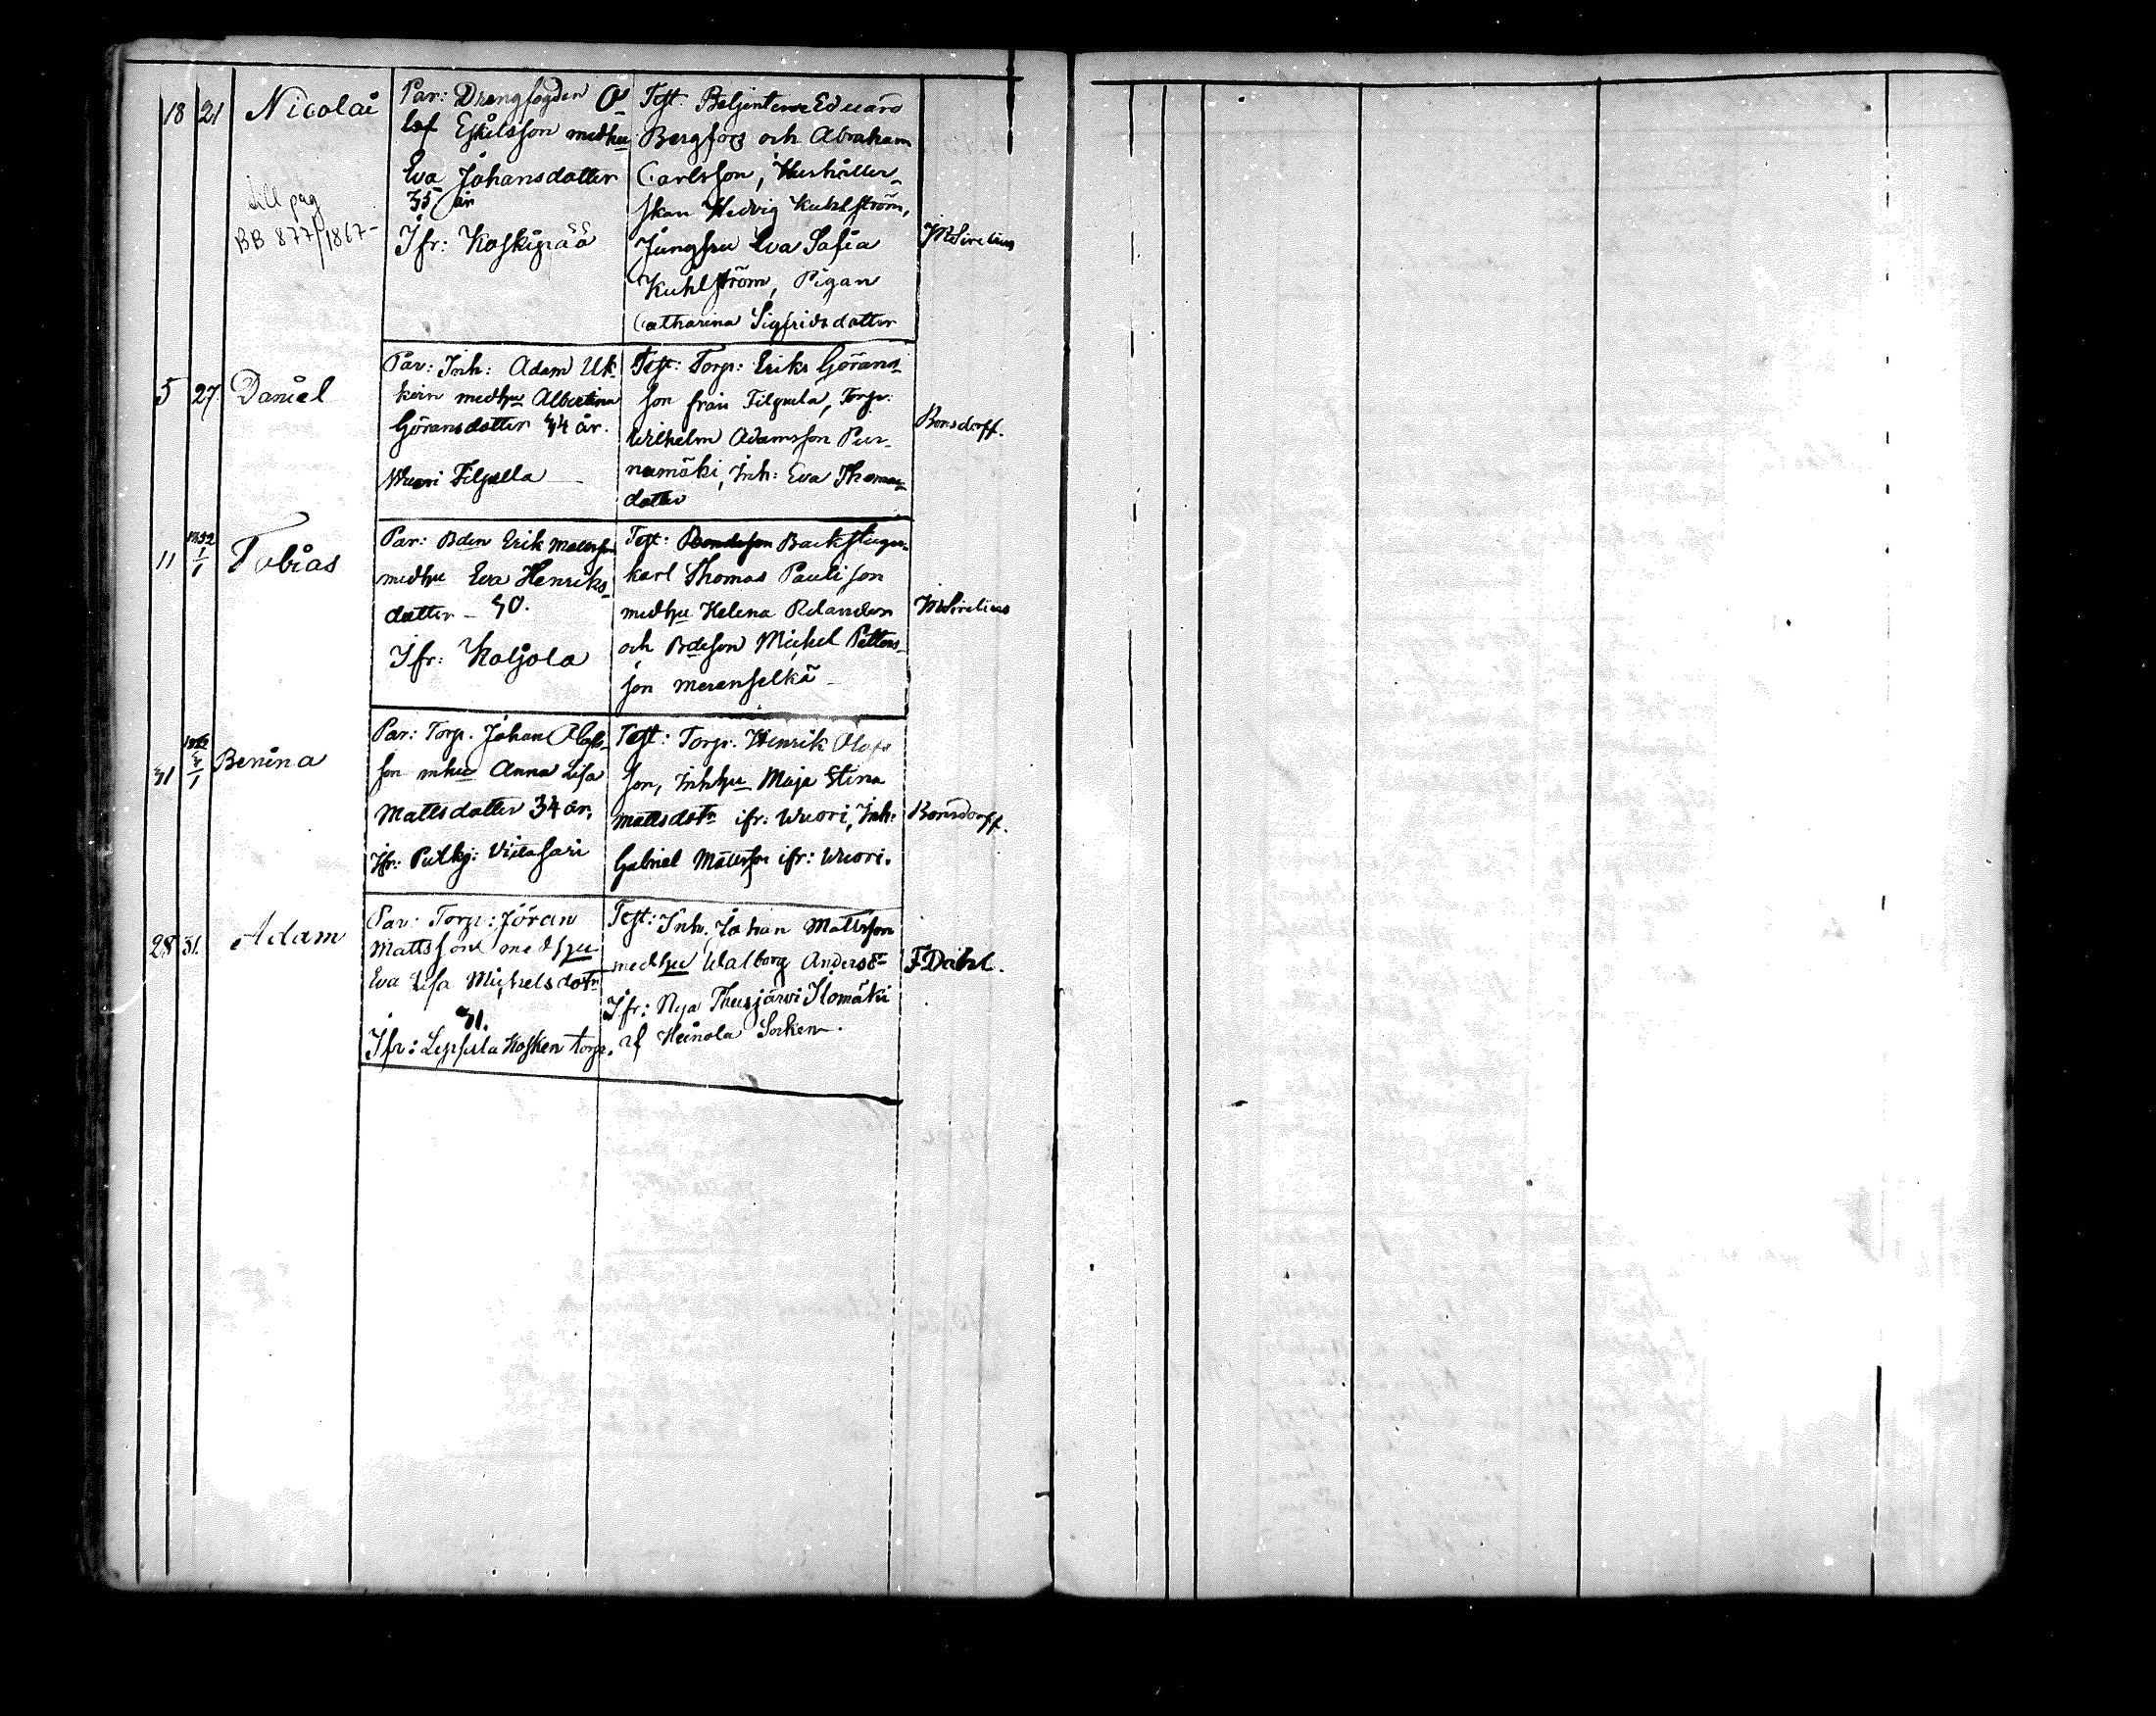 18 21 Nicolai
Par: Drengfogden O-
lof Eskelsson med hu
Eva Johansdotter
35 år
Ifr: Koskipää
Test: Betjenterne Eduard
Bergfors och Abraham
Carlsson, Hushåller-
skan Hedvig Kuhlström,
Jungfru Eva Sofia
Kuhlström, Pigan
Catharina Sigfridsdotter
till pag
BB 877/1867-
Sirelius
5 27 Daniel
Par: Inh: Adam Uk-
koin med hu Albertina
Göransdotter 44 år.
Wuori Filpula
Test: Torp: Eriks Görans-
son från Filpula, Torp:
Wilhelm Adamsson Pur-
numäki, Inh: Eva Thomas
dotter
Bonsdorff.
11 1832 1/1 Tobias
Par: Bden Erik Mattsson
med hu Eva Henriks-
dotter - 40.
Ifr: Koljola
Test: Backstugu-
karl Thomas Paulsson
med hu Helena Relander
och Bdeson Michel Petters-
son Merenselkä
Sirelius
31 Benina
Par: Torp. Johan Olofs-
son mhu Anna Lisa
Mattsdotter 34 år.
Ifr: Pulkj: Viitasari
Test: Torp. Henrik Olofs
son, Inh hu Maja Stina
Mattsdotr ifr: Wuori, Inh:
Gabriel Mattsson ifr: Wuori.
Bonsdorff.
28 31. Adam
Par: Torp: Jöran
Mattsson med hu
Eva Lisa Michelsdotr
41.
Ifr: Lepsala Kosken torp.
Test: Inh. Johan Mattsson
med hu Walborg Andersdr
Ifr: Nya Thusjärvi Ilomäki
af Heinola Socken.
F Dahl.